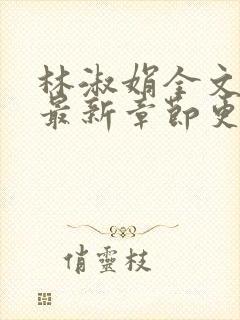 林淑娟全文
最新章節更
俏靈枝